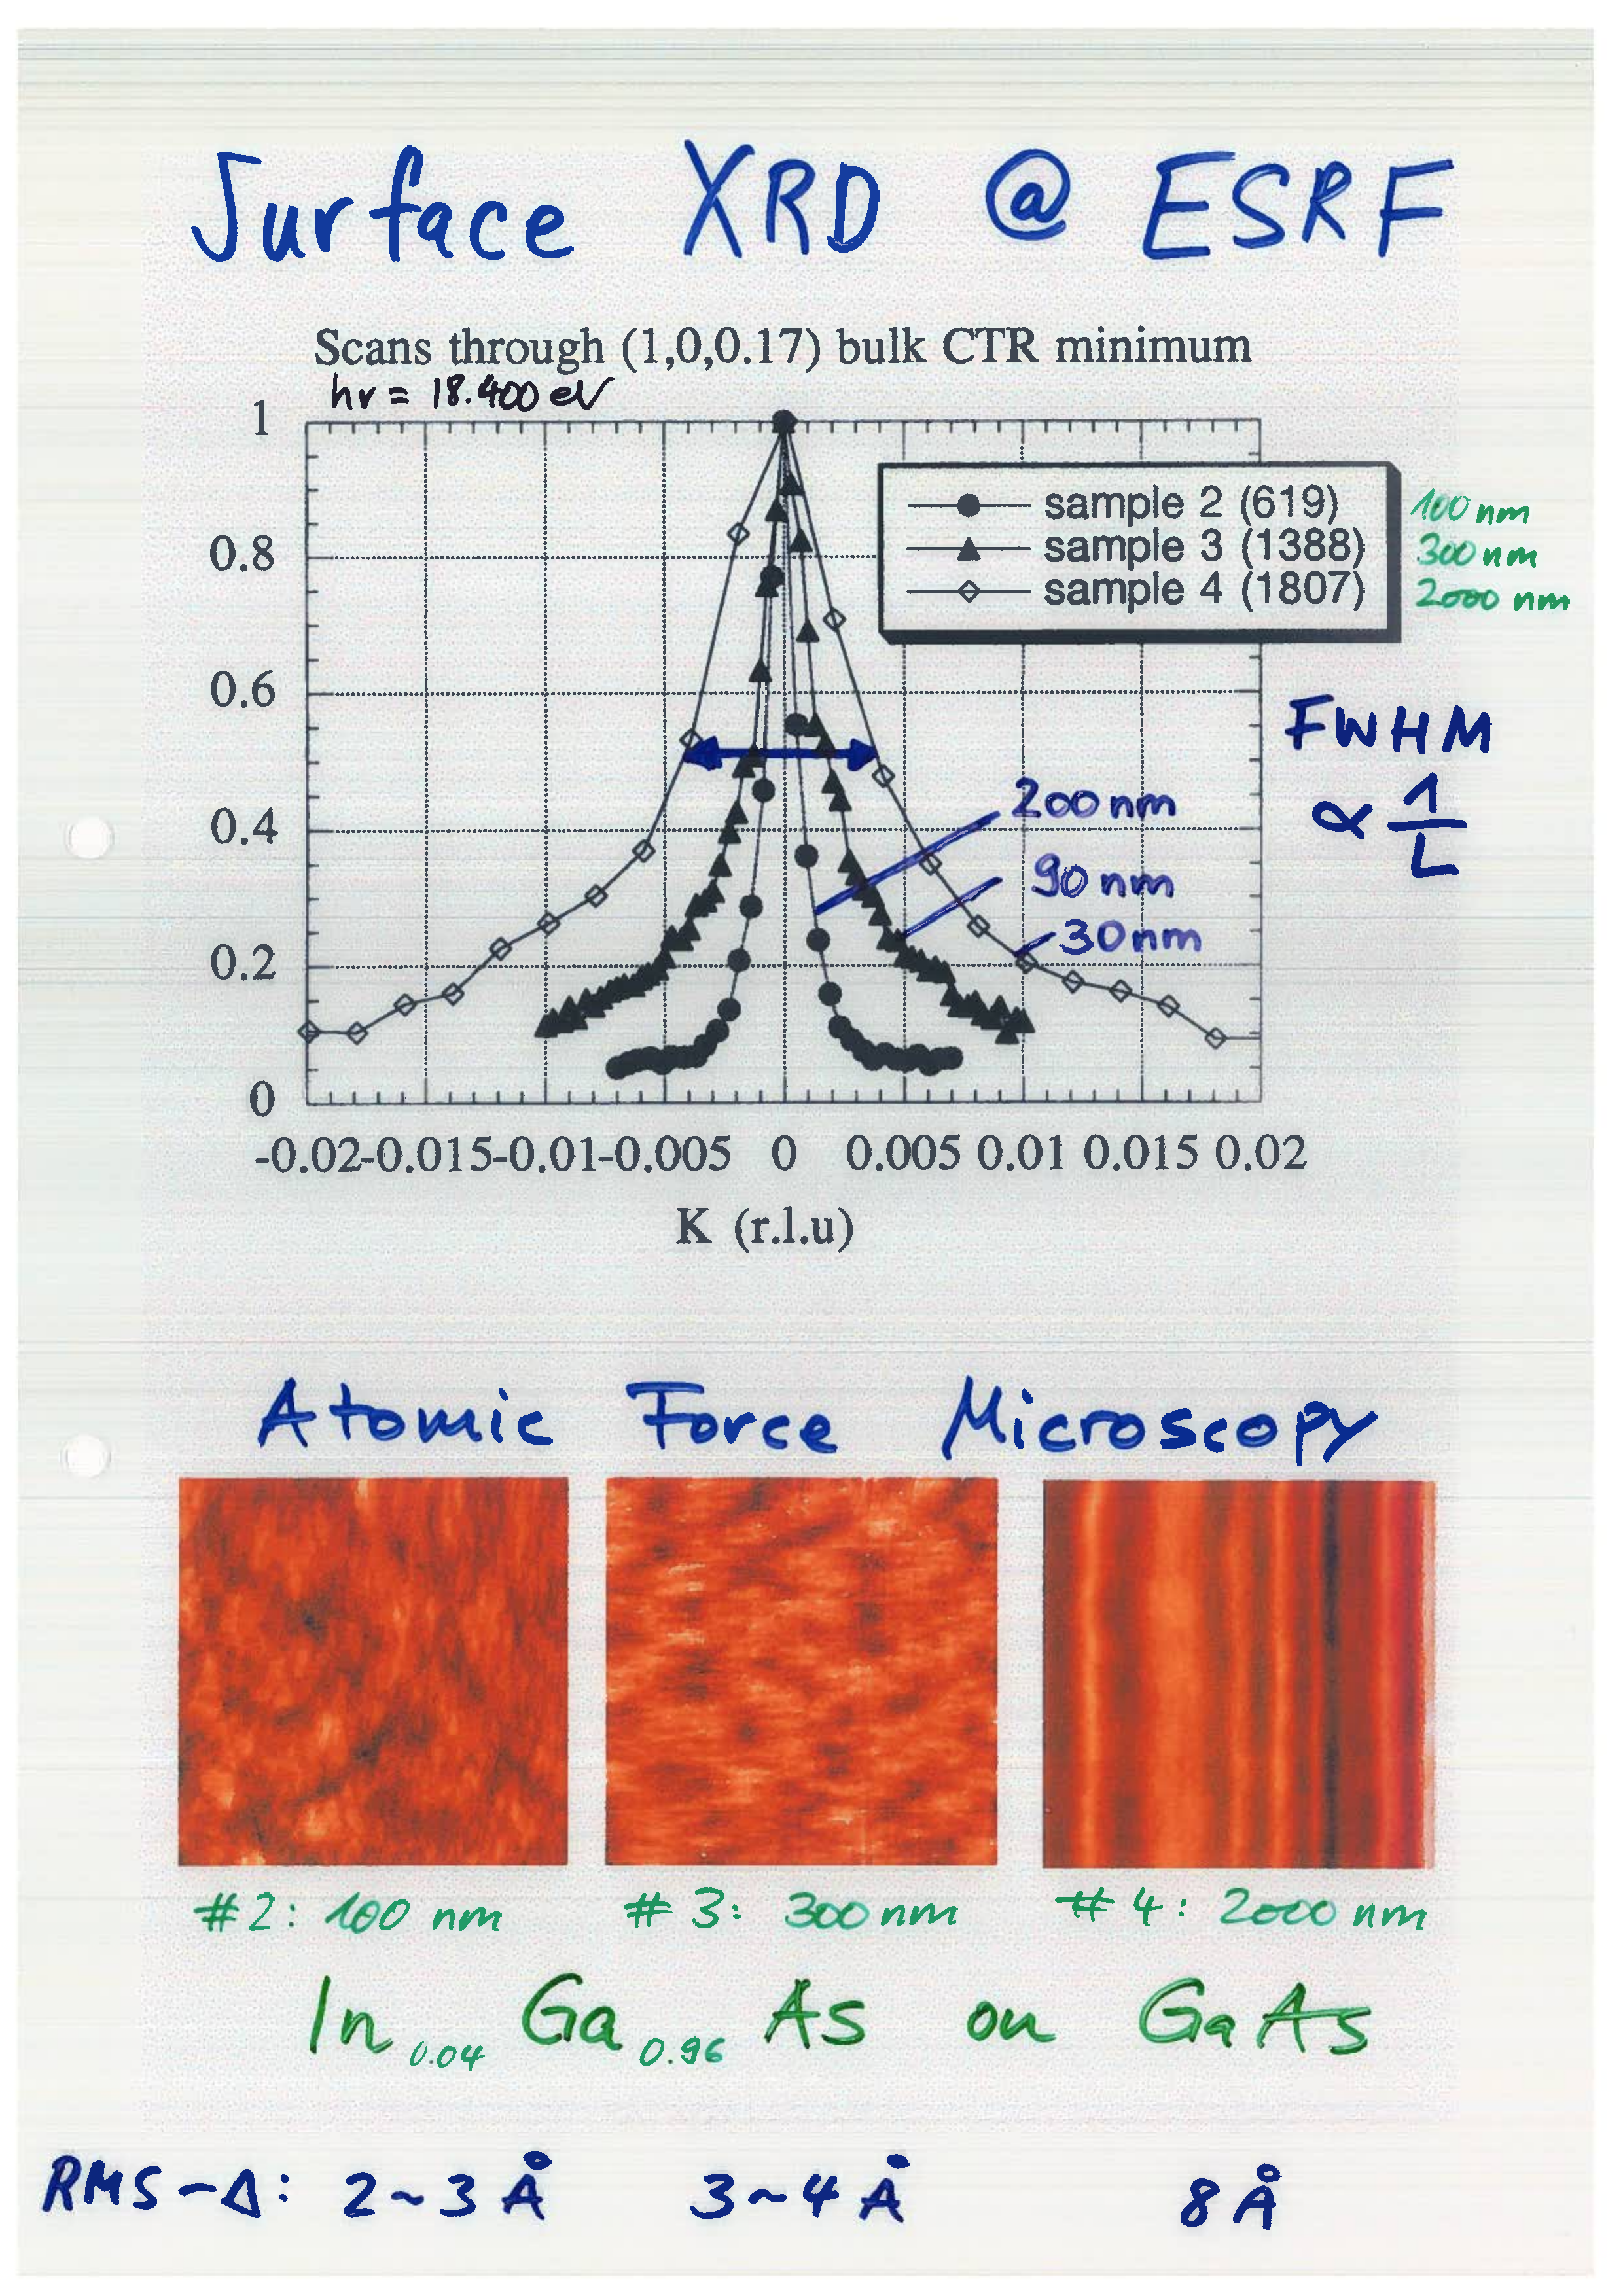 Surface XRD @ ESRF
Scans through (1,0,0.17) bulk CTR minimum
hν = 18.400 eV
1
0.8
0.6
0.4
0.2
0
sample 2 (619) 100 nm
sample 3 (1388) 300 nm
sample 4 (1807) 2000 nm
FWHM
∝ 1/L
200 nm
90 nm
30 nm
-0.02 -0.015 -0.01 -0.005 0 0.005 0.01 0.015 0.02
K (r.l.u)
Atomic Force Microscopy
#2: 100 nm #3: 300 nm #4: 2000 nm
In0.04 Ga0.96 As on GaAs
RMS-Δ: 2~3 Å 3~4 Å 8 Å